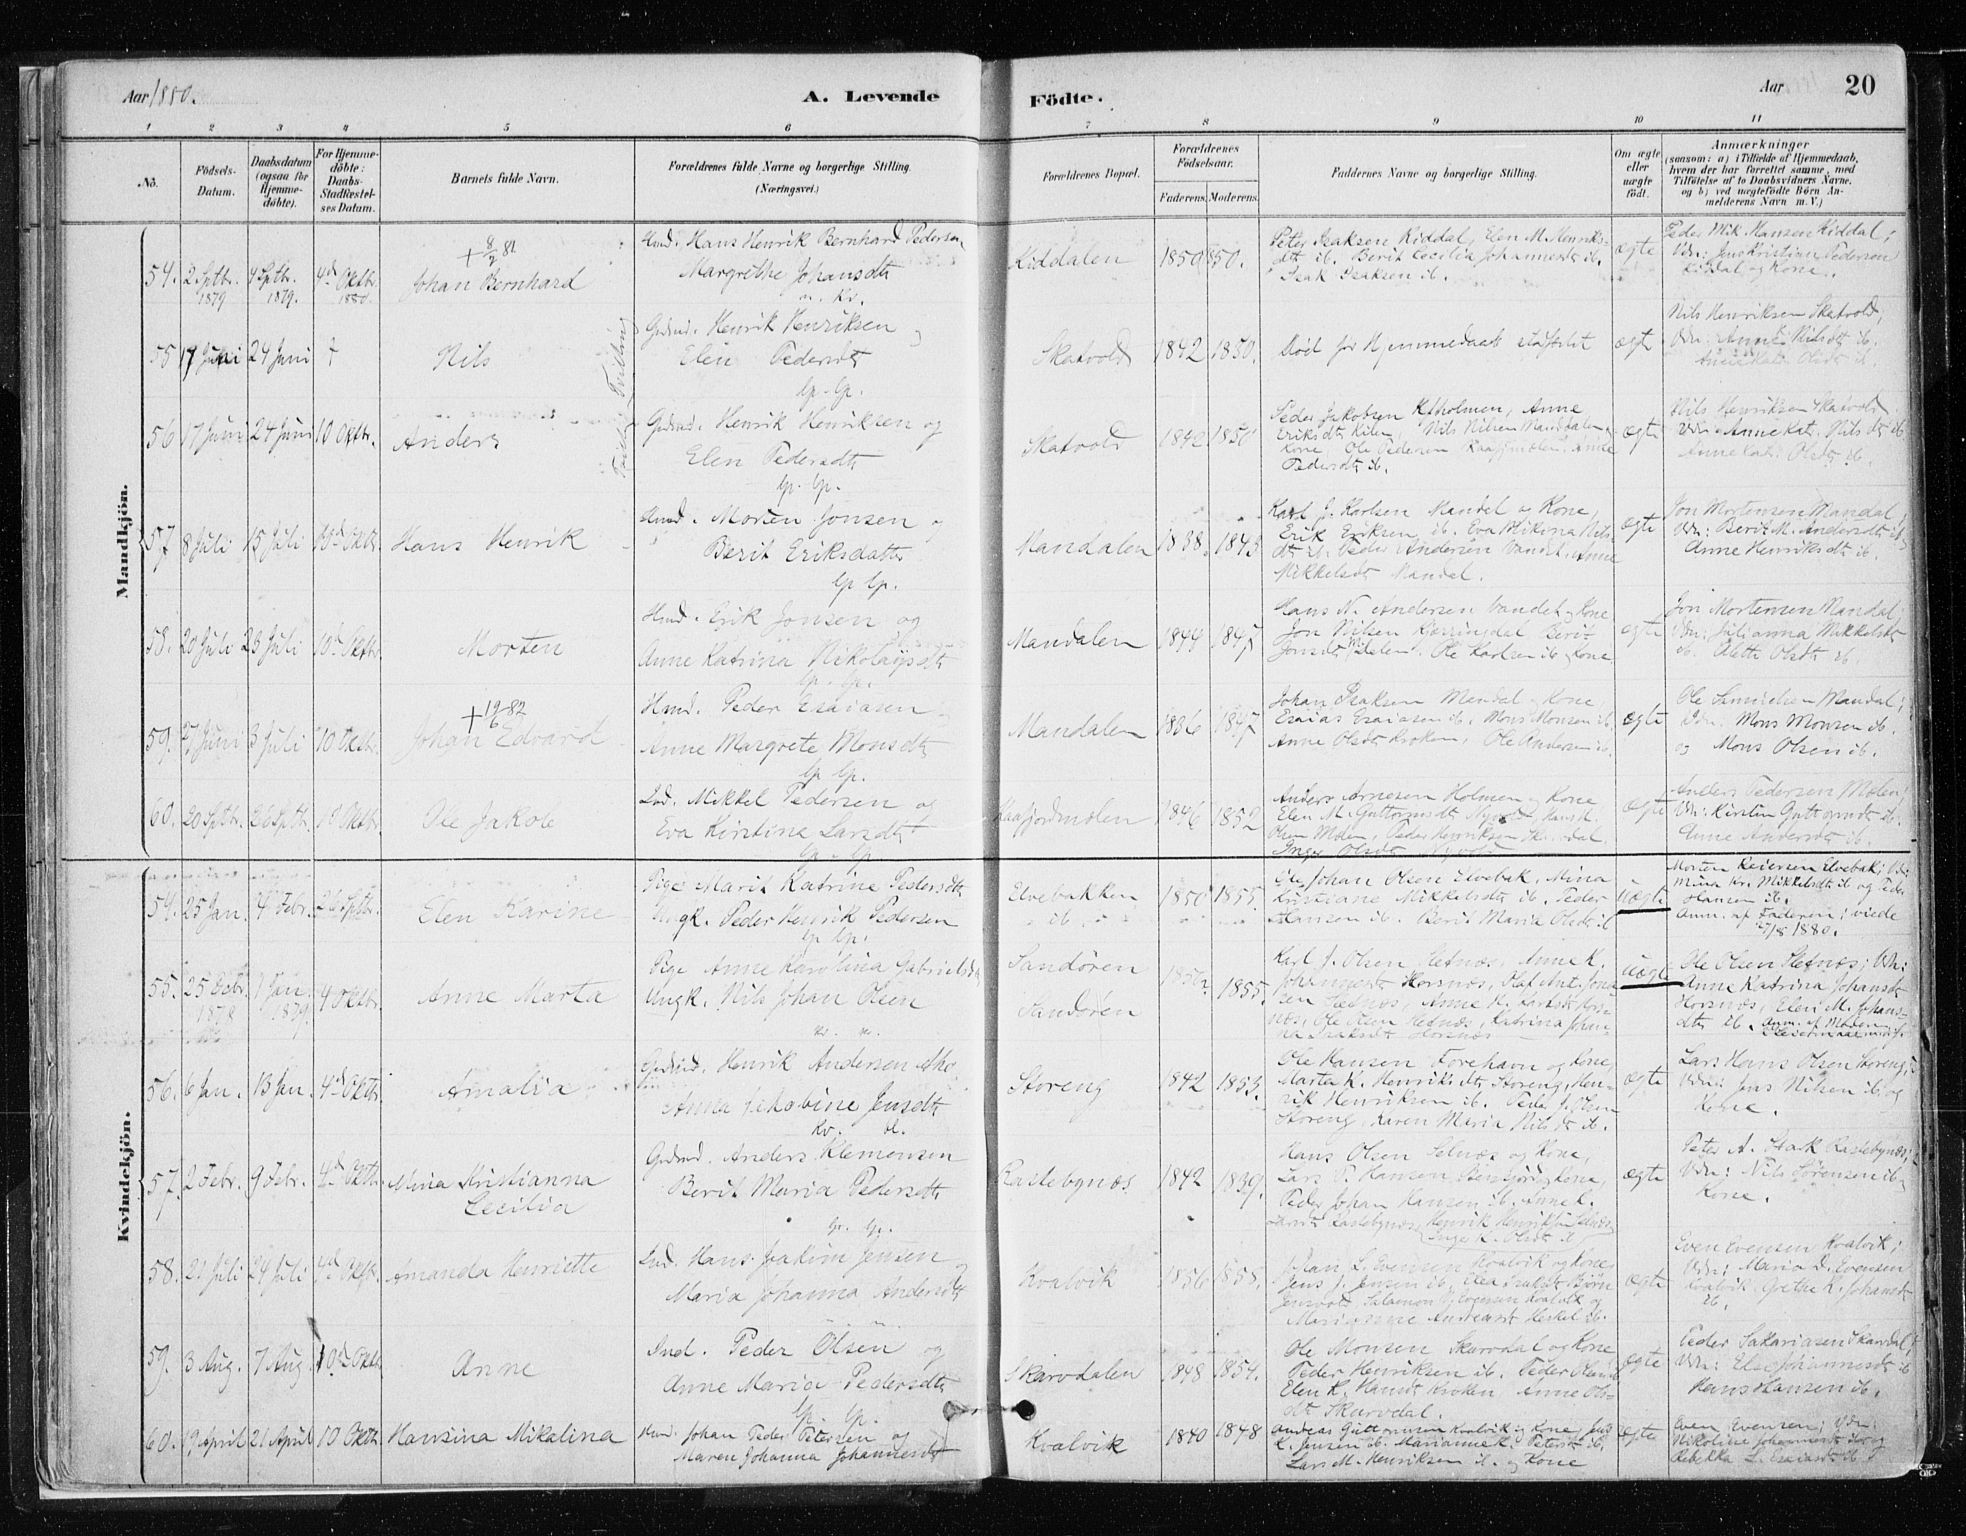 Aar 1880.
A. Levende
Födte.
Aar
20
1 2 3 4 5 6 7 8 9 10 11
No.
Födsels-
Datum.
Daabsdatum
(ogsaa for
Hjemme-
döbte).
For Hjemme-
döbte:
Daabs-
Stadfæstel-
ses Datum.
Barnets fulde Navn.
Forældrenes fulde Navne og borgerlige Stilling.
(Næringsvei.)
Forældrenes Bopæl.
Forældrenes
Födselsaar.
Faderens.
Moderens.
Faddernes Navne og borgerlige Stilling.
Om ægte
eller
uægte
födt.
Anmærkninger
(saasom: a) i Tilfælde af Hjemmedaab,
hvem der har forrettet samme, med
Tilföielse af to Daabsvidners Navne,
og b) ved uægtefödte Börn An-
melderens Navn m. V.)
Mandkjön.
54. 2 Sptbr. 1879 4 Sptbr. 1879. 4de Oktbr. 1880.
+ 8/2 81
Johan Bernhard
Hmd. Hans Henrik Bernhard Pedersen,
Margrethe Johansdtr
n. Kv.
Kiddalen 1850 1850.
Peter Isaksen Kiddal, Elen M. Henriks-
dtr ib. Berit Cecilia Johannesdtr ib.
Isak Isaksen ib.
ægte
Peder Mik Hansen Kiddal;
Vdn: Jens Kristian Pedersen
Kiddal og Kone.
55 17 Juni 24 Juni †
Nils
Tvilling
Gdmd. Henrik Henriksen og
Elen Pedersdtr
lp. lp.
Skatvold 1842 1850.
Död för Hjemmedaab stadfæstet
ægte
Nils Henriksen Skatvold,
Vdn: Anne K. Nilsdtr ib.
Anne Kat. Olsdtr ib.
56 17 Juni 24 Juni 10 Oktbr.
Anders
Tvilling
Gdmd. Henrik Henriksen og
Elen Pedersdtr
lp. lp.
Skatvold 1842 1850
Peder Jakobsen Holmen, Anne
Eriksdtr Kilen, Nils Nilsen Mandalen og
Kone, Ole Pedersen Kaafjmolen, Anne
Pedersdtr ib.
ægte
Nils Henriksen Skatvold
Vdn: Anne Kat. Nilsdtr ib.
Anne Kat. Olsdtr ib.
57. 8 Juli 15 Juli 10de Oktbr.
Hans Henrik
Hmd. Morten Jonsen og
Berit Eriksdatter
lp lp.
Mandalen 1838. 1843
Karl J. Karlsen Mandal og Kone,
Erik Eriksen ib. Eva Mikina Nils-
dtr ib. Peder Andersen Vandet, Anne
Mikkelsdtr Mandal.
ægte
Jon Mortensen Mandal
Vdn: Berit M. Andersdtr ib og
Anne Henriksdtr ib.
58. 20 Juli 23 Juli 10de Oktbr
Morten
Hmd. Erik Jonsen og
Anne Katrina Nikolaisdtr
lp. lp.
Mandalen 1844 1847
Hans N. Andersen Vandet og Kone
Jon Nilsen Kjerringdal Berit
Jonsdtr Mdalen. Ole Karlsen ib og Kone
ægte
Jon Mortensen Mandal;
Vdn: Julianna Mikkelsdtr
ib. Alette Olsdtr ib.
59. 27 Juni 3 Juli 10 Oktbr.
+ 19/6 82
Johan Edvard
Hmd. Peder Esaiasen og
Anne Margrete Monsdtr
lp lp.
Mandalen 1836 1847
Johan Isaksen Mandal og Kone
Esaias Esaiasen ib. Mons Monsen ib.
Anne Olsdtr Kroken, Ole Andersen ib.
ægte
Ole Samuelsen Mandal;
Vdn: Mons Monsen ib.
og Mons Olsen ib.
60. 20 Sptbr. 26 Sptbr. 10 Oktbr.
Ole Jakob
Ind. Mikkel Pedersen og
Eva Kirstina Larsdtr
lp. lp.
Kaafjordmolen 1846 1852
Anders Arnesen Holmen og Kone
Elen M. Guttormsdtr Nyvold, Hans K.
Olsen Molen, Peder Henriksen Skardal
Inger Olsdtr Nyvold
ægte
Anders Pedersen Molen,
Vdn: Kirsten Guttormsdtr ib.
Anne Andersdtr ib.
Kvindekjön.
54. 25 Jan. 4 Febr. 26 Sptbr.
Elen Karine
Pige Marit Katrine Pedersdtr
Ungk. Peder Henrik Pedersen
lp lp.
Elvebakken
ib.
1850 1855.
Ole Johan Olsen Elvebak, Mina
Kristiane Mikkelsdtr ib. Peder
Hansen ib. Berit Maria Olsdtr ib
uægte
Morten Reiersen Elvebak; Vdn:
Mina Kr. Mikkelsdtr ib og Peder
Hansen ib.
Anm. af Faderen; viede
5/8 1880.
55. 25 Decbr. 1878 1 Jan. 1879. 4 Oktbr.
Anne Marta
Pige Anne Karolina Gabrielsdtr
Ungk. Nils Johan Olsen
kv. n.
Sandören
Sandören
1856 1855.
Karl J. Olsen Stefnæs, Anne K.
Johannesdtr Horsnæs, Olaf Ant. Jona
sen Stefnæs, Anne K. Larsdtr Hors-
næs, Ole Olsen Stefnæs, Katrina Johan-
na Isaksdtr Horsnæs
uægte
Ole Olsen Stefnæs; Vdn:
Anne Katrina Johansdtr
Horsnæs, Elen M. Johans-
dtr ib. Anm. af Moren
56. 6 Jan. 13 Jan. 4de Oktbr.
Amalia
Gdmd. Henrik Andersen
Anna Jakobine Jensdtr
Kv. bl.
Storeng 1842 1853.
Ole Hansen Forehavn og Kone
Marta K. Henriksdtr Storeng, Hen-
rik Henriksen ib. Peder J. Olsen
Storeng, Karen Maria Nilsdtr ib.
ægte
Lars Hans Olsen Storeng,
Vdn: Jens Nilsen ib og
Kone.
57. 2 Febr. 9 Febr. 4de Oktbr.
Mina Kristianna
Cecilia
Gdmd. Anders Klemensen
Berit Maria Pedersdtr
lp. lp.
Rastebynæs 1842 1839.
Hans Olsen Selnæs og Kone,
Lars P. Hansen Stenfjord og Kone,
Peder Johan Hansen ib. Anne K.
Larsdtr Rastebynæs, Henrik Henriksen Selnæs
Inge K. Olsdtr ib
ægte
Peter A. Stark Rastebynæs;
Vdn: Nils Sörensen ib og
Kone.
58. 21 Juli 24 Juli 4de Oktbr.
Amanda Henriette
Ind. Hans Joakim Jensen og
Maria Johanna Andersdtr
Kvalvik 1856 1858.
Johan L. Evensen Kvalvik og Kone,
Jens J. Jensen ib. Elea Isaksdtr Björn
Jensvold, Salamon J. Evensen Kvalvik og
Marianne Andreasdtr Heskel ib.
ægte
Even Evensen Kvalvik;
Vdn: Maria D. Evensen
Kvalvik, Grethe K. Johansdtr
ib.
59. 3 Aug. 7 Aug. 10de Oktbr
Anne
Ind. Peder Olsen og
Anne Maria Pedersdtr
lp. lp.
Skarvdalen 1848 1854.
Ole Monsen Skarvdal og Kone
Peder Henriksen ib. Peder Olsen ib
Elen K. Hansdtr Kroken Anne Ols-
dtr Skarvdal.
ægte
Peder Sakariasen Skarvdal;
Vdn: Else Johannesdtr ib
Hans Hansen ib.
60. 19 April 21 April 10 Oktbr.
Hansina Mikalina
Hmd. Johan Peder Petersen og
Maren Johanna Johannesdtr
Kvalvik 1840 1848
Andreas Guttormsen Kvalvik og Kone, Jens
K. Jensen ib. Marianne K. Petersdtr ib,
Lars M. Henriksen ib. og Kone
ægte
Even Evensen; Vdn:
Nikoline Johannesdtr ib og
Rebekka L. Esaiasdtr ib